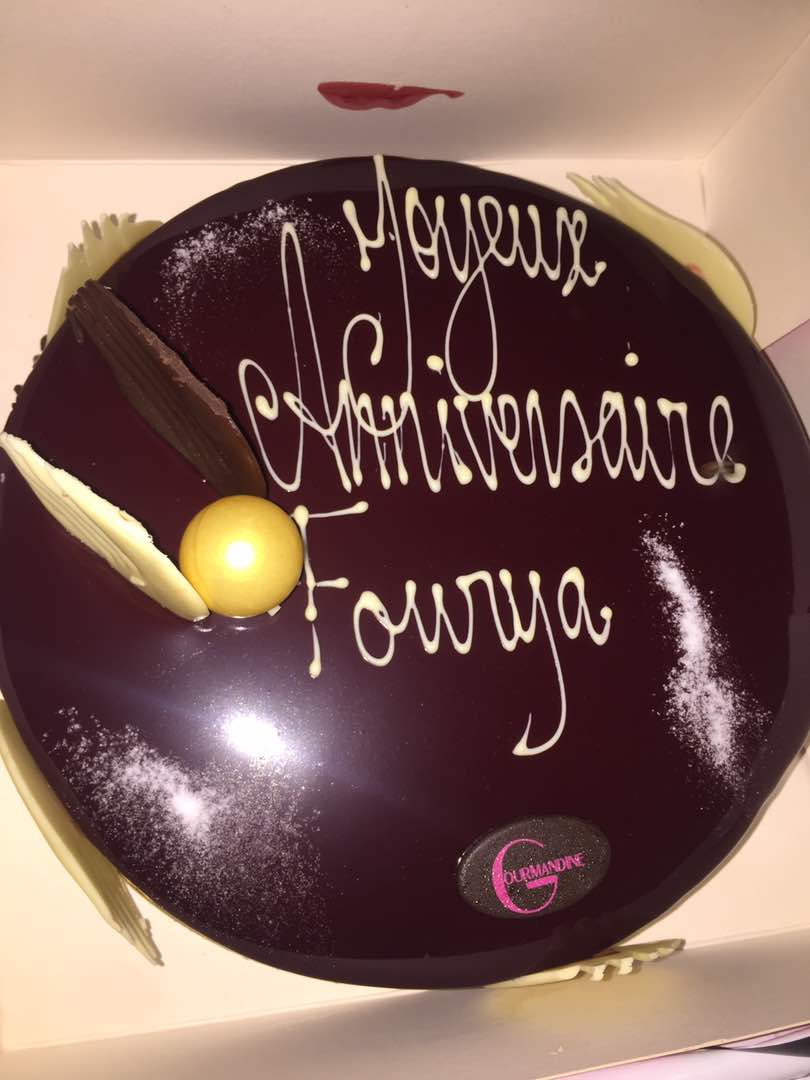 Joyeux
Anniversaire
Fourya
GOURMANDINE